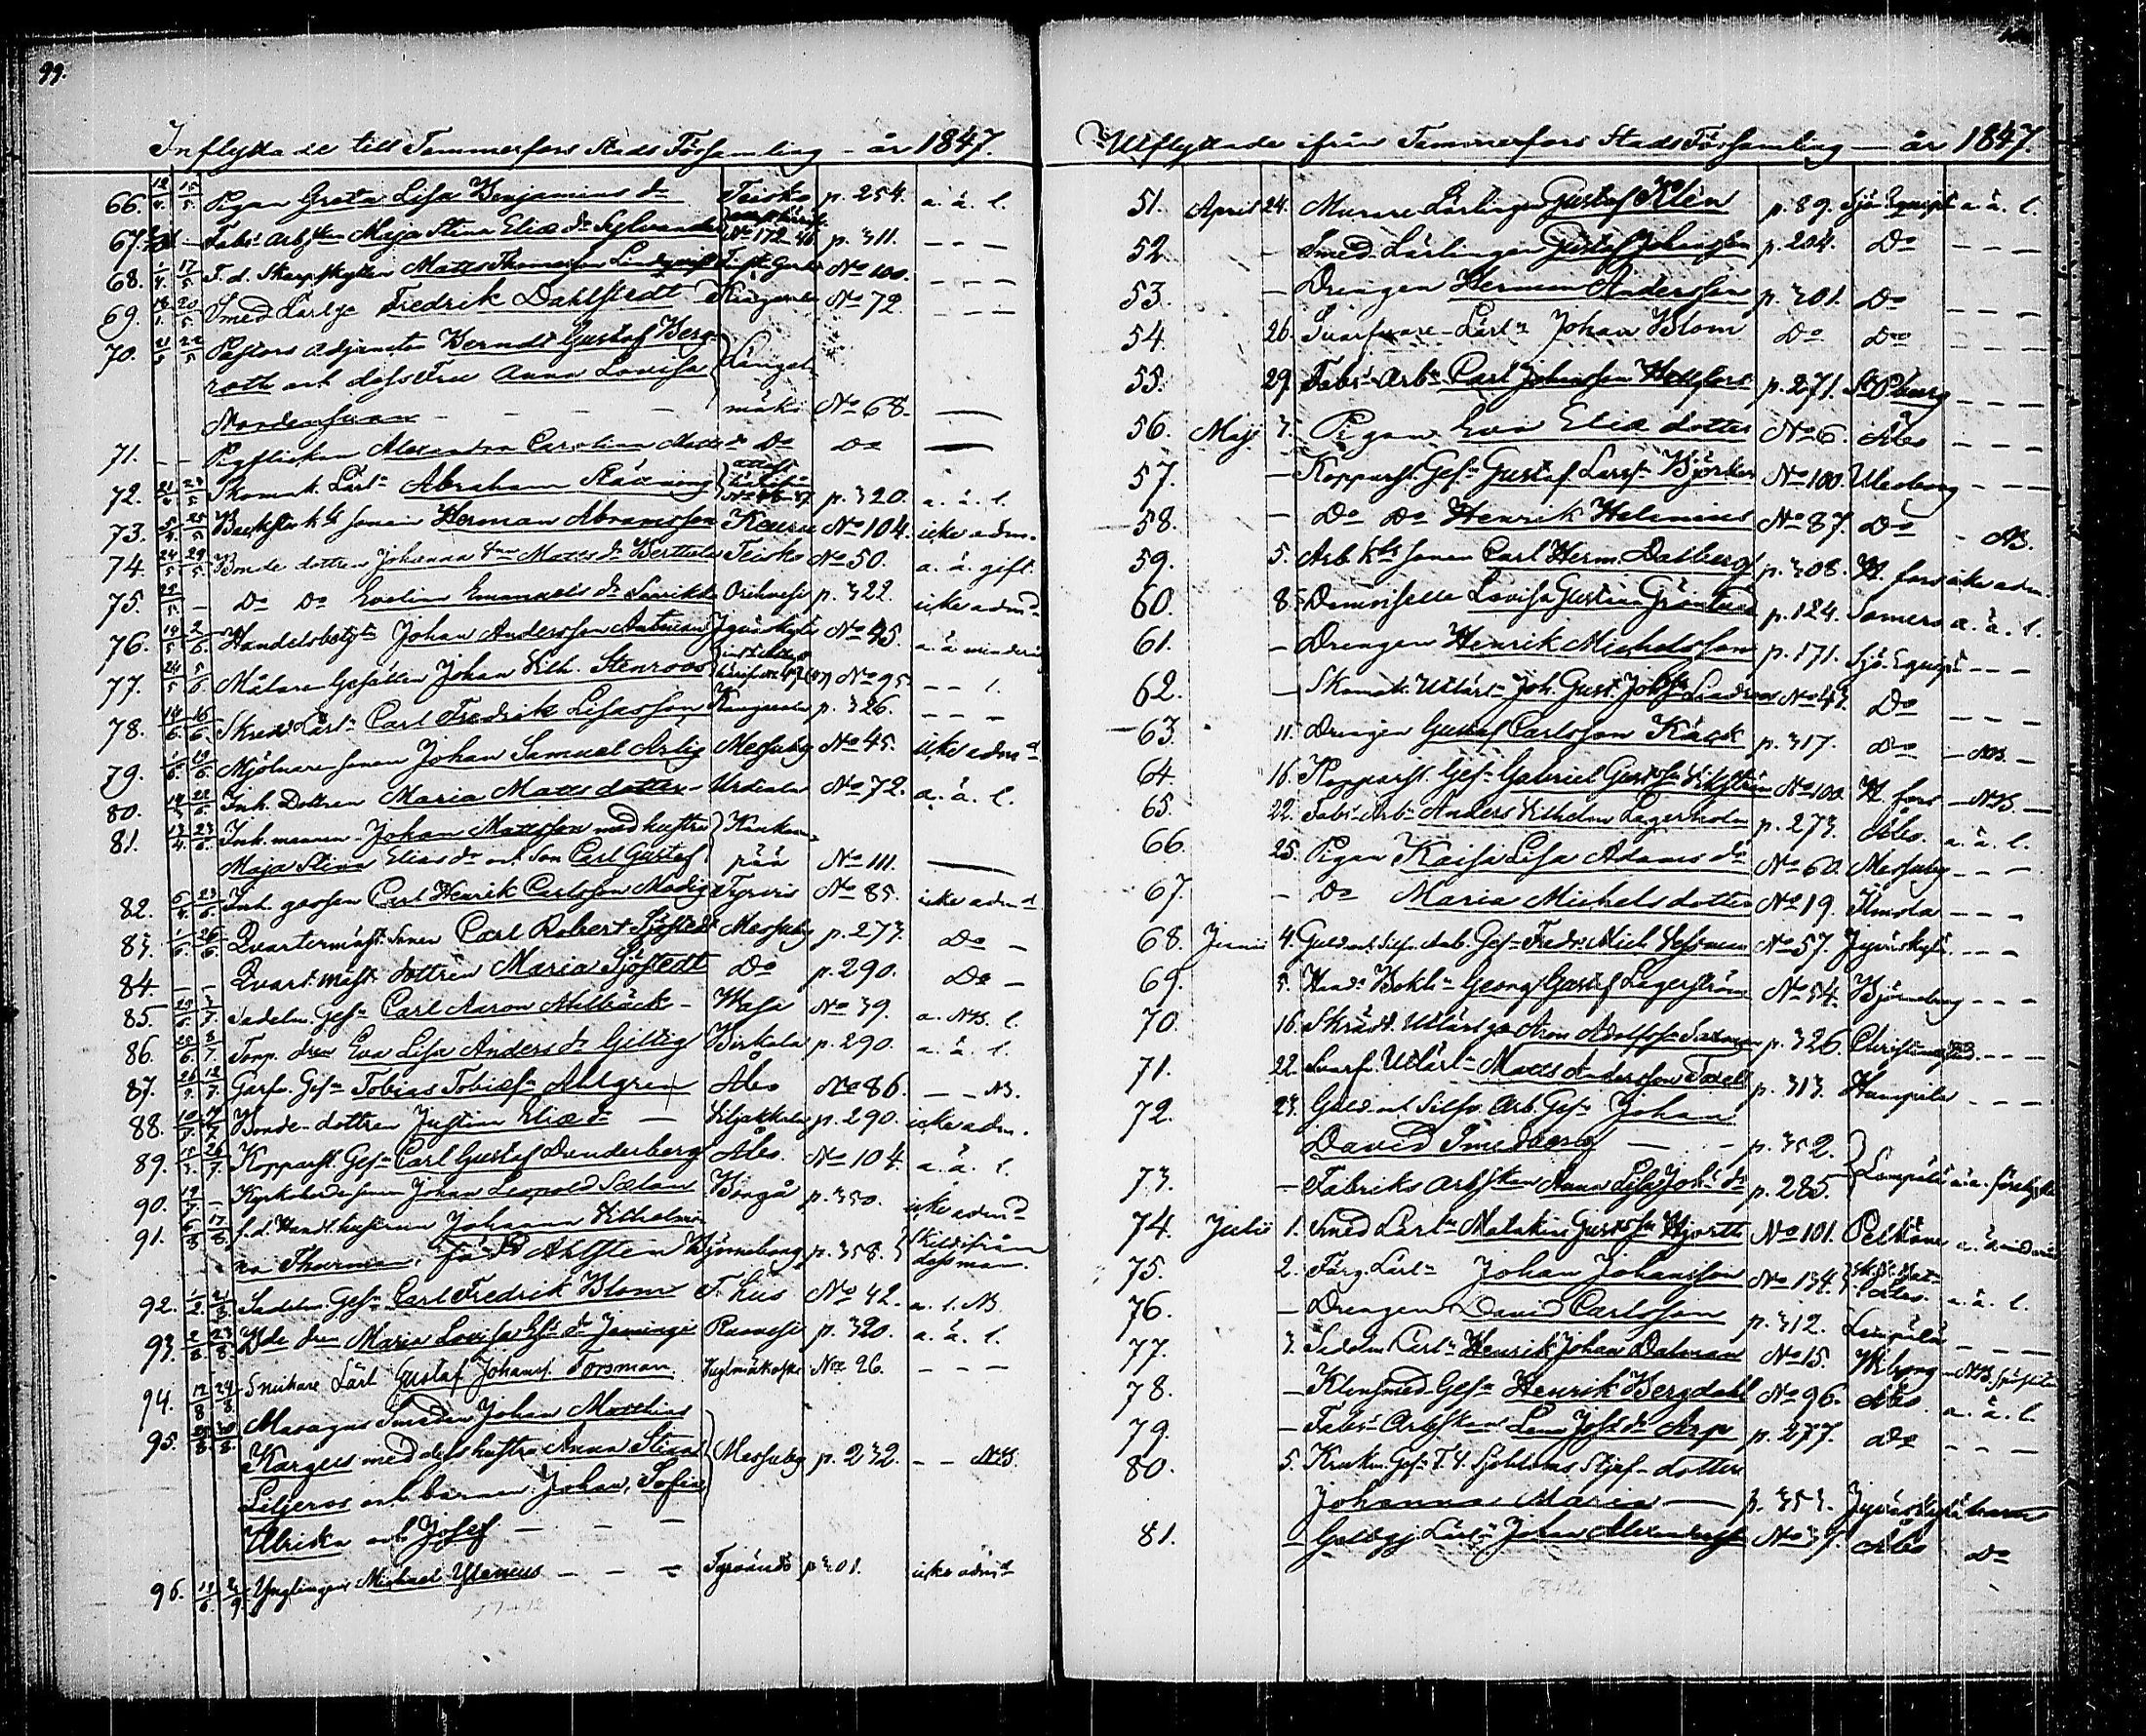 99.
Inflyttade till Tammerfors Stads Församling - år 1847.
66. 12/4. 15/5. Pigan Greta Lisa Benjamins dr Teisko p. 254. a. ä. l.
67. Fabr. Arb. Maja Stina Eliæ dr Sylvander No 172 p. 311. - - -
68. 1/4. 17/5. F. d. Skarpskytten Matts Thomasson Lindqvist No 100. - - -
69. 18/1. 20/5. Smed Lärlge Fredrik Dahlstedt Kangasala No 72. - - -
70. 21/5 22/5 Pastors Adjuncten Berndt Gustaf Berg-
roth och dess Fru Anna Lovisa Längel-
Nordensvan - - - mäki No 68. -
71. - - Pigflickan Alexandra Carolina Matts dr Do Do -
72. Skomak. Lärl. Abraham Stävning No 46-47 p. 320. a. ä. l.
73. 5/5 25/5 Backstuk. sonen Herman Abramsson Keuru No 104. icke adm.
74. 24/5 29/5 Bonde dottren Johanna Matts dr Berttula Teisko No 50. a. ä. gift.
75. 25/5. - Do Do Evelina Emanuels dr Orihvesi p. 322. icke admd
76. 14/5 2/6. Handelsbetjt Johan Andersson Autman Jyväskylä No 45. a. ä minderå
77. 24/5 5/6 Målare Gesällen Johan Vilh. Stenroos No 95 - - l.
78. 14/6. 16/6. Skrädd. Lärl. Carl Fredrik Lisasson Kangasala p. 326. - - -
79. 1/6. 19/6. Mjölnare sonen Johan Samuel Arlig Messuby No 45. icke admd
80. 14/5 22/6 Inh. Dottren Maria Matts dotter - Urdiala No 72. a. ä. l.
81. 13/4 23/6. Inh. mannen Johan Mattsson med hustru Kankan-
Maja Stina Elias dr och Son Carl Gustaf pää No 111. -
82. 6/6. 23/6. Inh. gossen Carl Henrik Carlsson Modig Tyrvis No 85. icke admd
83. 1/6. 26/6. Qvartermäst. Sonen Carl Robert Sjöstedt Messuby p. 273. Do -
84. - - Qvart. mäst. dottren Maria Sjöstedt Do p. 290. Do -
85. 29/6. 3/7. Sadelm. Gesn Carl Aaron Ahlbäck - Wasa No 39. a. NB. l.
86. 25/6. 8/7. Torp. dren Eva Lisa Anders dr Gillig Birkala p. 290. a. ä. l.
87. 26/5. 12/7. Garfv. Gesn Tobias Tobiæsn Ahlgren Åbo No 86. - - NB.
88. 10/7. 14/7 Bonde-dottren Justina Eliæ dr - Viljakkala p. 290. icke adm.
89. 15/3. 26/7. Kopparsl. Gesn Carl Gustaf Dunderberg Åbo. No 104. a. ä. l.
90. - Kyrkoherde sonen Johan Leopold Sælan Borgå p. 350. icke admd
91. 6/8 17/8. f. d. Handl. hustrun Johanna Vilhelmi-
na Thurman, född Ahlsten Björneborg p. 358. skild ifrån dess man.
92. 1/2. 21/8. Sadelm. Gesn Carl Fredrik Blom T. hus No 42. a. l. NB.
93. 2/8. 23/8. Bde dren Maria Lovisa dr Jaminge Ruovesi p. 320. a. ä. l.
94. 12/8 24/8. Snickare Lärl Gustaf Johanss. Forsman. No 26. - - -
95. 25/8. 30/8. Masugns Smeden Johan Matthias
Kargus med dess hustru Anna Stina
Liljeros och barnen: Johan, Sofia, Messuby p. 232. - - NB.
Ulrika och Josef - - -
96. 13/6. 2/9 Ynglingen Michael Ylenius - - - Tyrvändö p 301. icke admd
77+12
Utflyttade ifrån Tammerfors Stads Församling - år 1847.
51. April 24. Murare Lärlingen Gustaf Klén p. 89. Sjö Equip. a. ä. l.
52. - Smed. Lärlingen Gustaf Johansson p. 204. Do - - -
53. - Drengen Herman Andersson p. 301. Do - - -
54. 26. Svarfvare-Lärln Johan Blom Do Do - - -
55. 29. Fabr. Arbn Carl Johansson Hellfors p. 271. St Pburg - - -
56. Maj 3. Pigan Eva Eliæ dotter No 6. Åbo - - -
57. - Kopparsl. Gesn Gustaf Larssn Björkn No 100. Uleåborg - - -
58. - Do Do Henrik Helenius No 87. Do - NB.
59. 5. Arb. kls sonen Carl Herm. Dalberg p. 308. H. fors icke adm.
60. 8. Demoiselle Lovisa Gustava Gränlund p. 124. Somero a. ä. l.
61. - Drengen Henrik Michelsson p. 171. Sjö Equip. - - -
62. - Skomak. Utlärl. Joh. Gust. Johss. Lindroos No 43. Do - - -
63. 11. Drengen Gustaf Carlsson Käck p. 317. Do - NB. -
64. 16. Kopparsl. Gesn Gabriel Gustafsn Vikström No 100. H. fors - NB. -
65. 22. Fabr. Arbn Anders Vilhelm Lagerholm p. 273. Åbo. a. ä. l.
66. 25. Pigan Kaisa Lisa Adams dr No 60. Messuby - - -
67. - Do Maria Michels dotter No 19. Ilmola - - -
68. Junii 4. Guld och Silfv. Arb. Gesn Fredr. Mich. Vessman No 57. Jyväskylä - - -
69. 5. Hand. Bokh. Georg Gustaf Lagerström No 54. Björneborg - - -
70. 16. Skrädd. Utlärlge Aron Adolfssn Saxman p. 326. Christinestad NB. - - -
71. 22. Svarfv. Utlärl. Matts Andersson Taxell p. 313. Humpila - - -
72. 23. Guld och Silfv. Arb. Gesn Johan
David Smedberg - - p. 352.
73. - Fabriks Arbskan Anna Lisa Johs dr p. 285. Lempälä a. ä.
74. Julii 1. Smed Lärln Malakias Gustafsn Hjortt No 101. Pelkäne
75. 2. Färg. Lärln Johan Johansson No 134. Åbo. a. ä. l.
76. - Drengen David Carlsson p. 312. Lempälä - - -
77. 3. Sadelm. Lärln Henrik Johan Dalman No 15. Wiborg - NB.
78. - Klensmed. Gesn Henrik Bergdahl No 96. Åbo a. ä. l.
79. - Fabr. Arbskan Lena Johs dr Arpe p. 277. Do - - -
80. 5. Krukm. Gesn Sjöbloms Styf-dotter
Johanna Maria - p. 353. Jyväskylä barn
81. - Guldsgj. Lärl. Johan Alexandersson No 37. Åbo Do